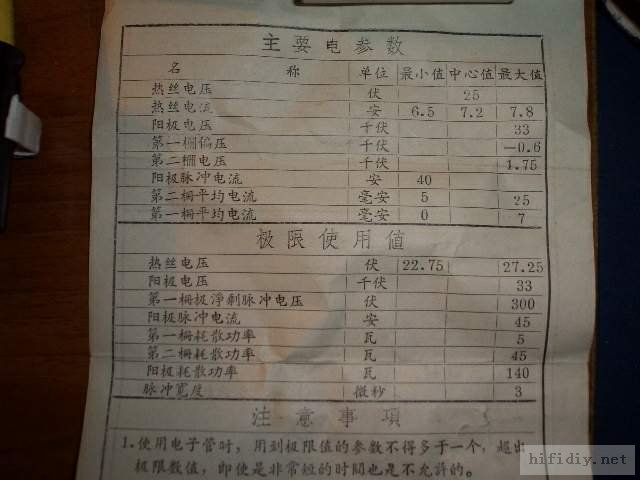 主要电参数
名 称 单位 最小值 中心值 最大值
热丝电压 伏 25
热丝电流 安 6.5 7.2 7.8
阳极电压 千伏 33
第一栅偏压 千伏 -0.6
第二栅电压 千伏 1.75
阳极脉冲电流 安 40
第二栅平均电流 毫安 5 25
第一栅平均电流 毫安 0 7
极限使用值
热丝电压 伏 22.75 27.25
阳极电压 千伏 33
第一栅极净剩脉冲电压 伏 300
阳极脉冲电流 安 45
第一栅耗散功率 瓦 5
第二栅耗散功率 瓦 45
阳极耗散功率 瓦 140
脉冲宽度 微秒 3
注意事项
1.使用电子管时，用到极限值的参数不得多于一个，超出
极限数值，即使是非常短的时间也是不允许的。
hifidiy.net